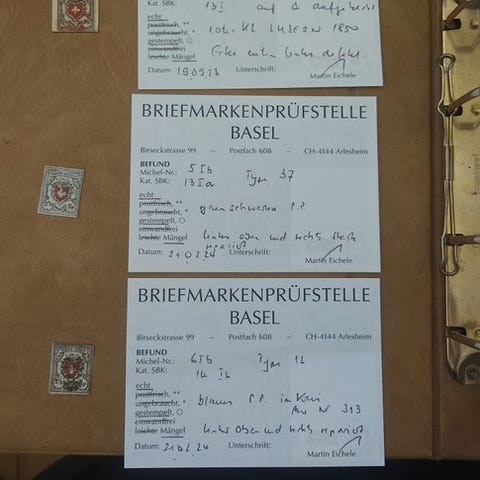 Kat. SBK: 13 I auf Δ aufgeklebt
echt
postfrisch, **
ungebraucht, * rote KZ LUZERN 1850
gestempelt, ⊙
einwandfrei Ecke unten links defekt
leichte Mängel
Datum: 19.09.23 Unterschrift:
Martin Eichele
BRIEFMARKENPRÜFSTELLE
BASEL
Birseckstrasse 99 – Postfach 608 – CH-4144 Arlesheim
BEFUND
Michel-Nr.: 5 Ib Type 37
Kat. SBK: 13 Ia
echt
postfrisch, **
ungebraucht, * P.P.
gestempelt, ⊙
einwandfrei
leichte Mängel links oben und rechts
repariert
Datum: 21.2.24 Unterschrift:
Martin Eichele
BRIEFMARKENPRÜFSTELLE
BASEL
Birseckstrasse 99 – Postfach 608 – CH-4144 Arlesheim
BEFUND
Michel-Nr.: 6 Ib Type 12
Kat. SBK: 14 Ib
echt
postfrisch, **
ungebraucht, * blauer P.P. im Kreis
gestempelt, ⊙ AW Nr. 313
einwandfrei
leichte Mängel links oben und rechts repariert
Datum: 21.2.24 Unterschrift:
Martin Eichele